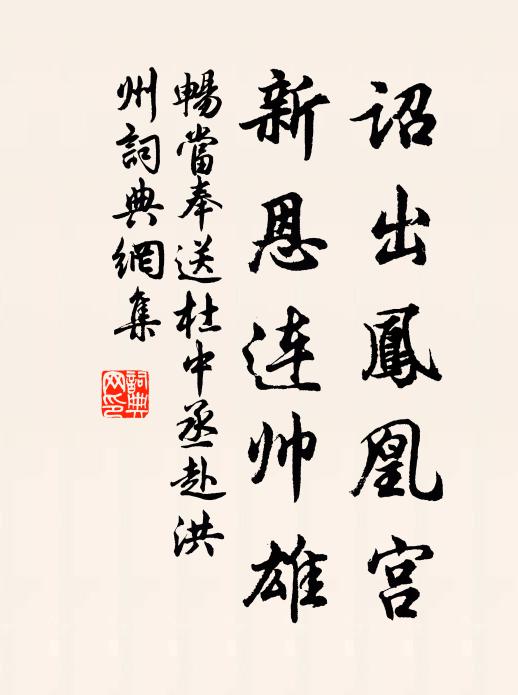 詔出鳳凰宮
新恩連帅雄
暢當奉送杜中丞赴洪
州詞典網集
詞典
网印